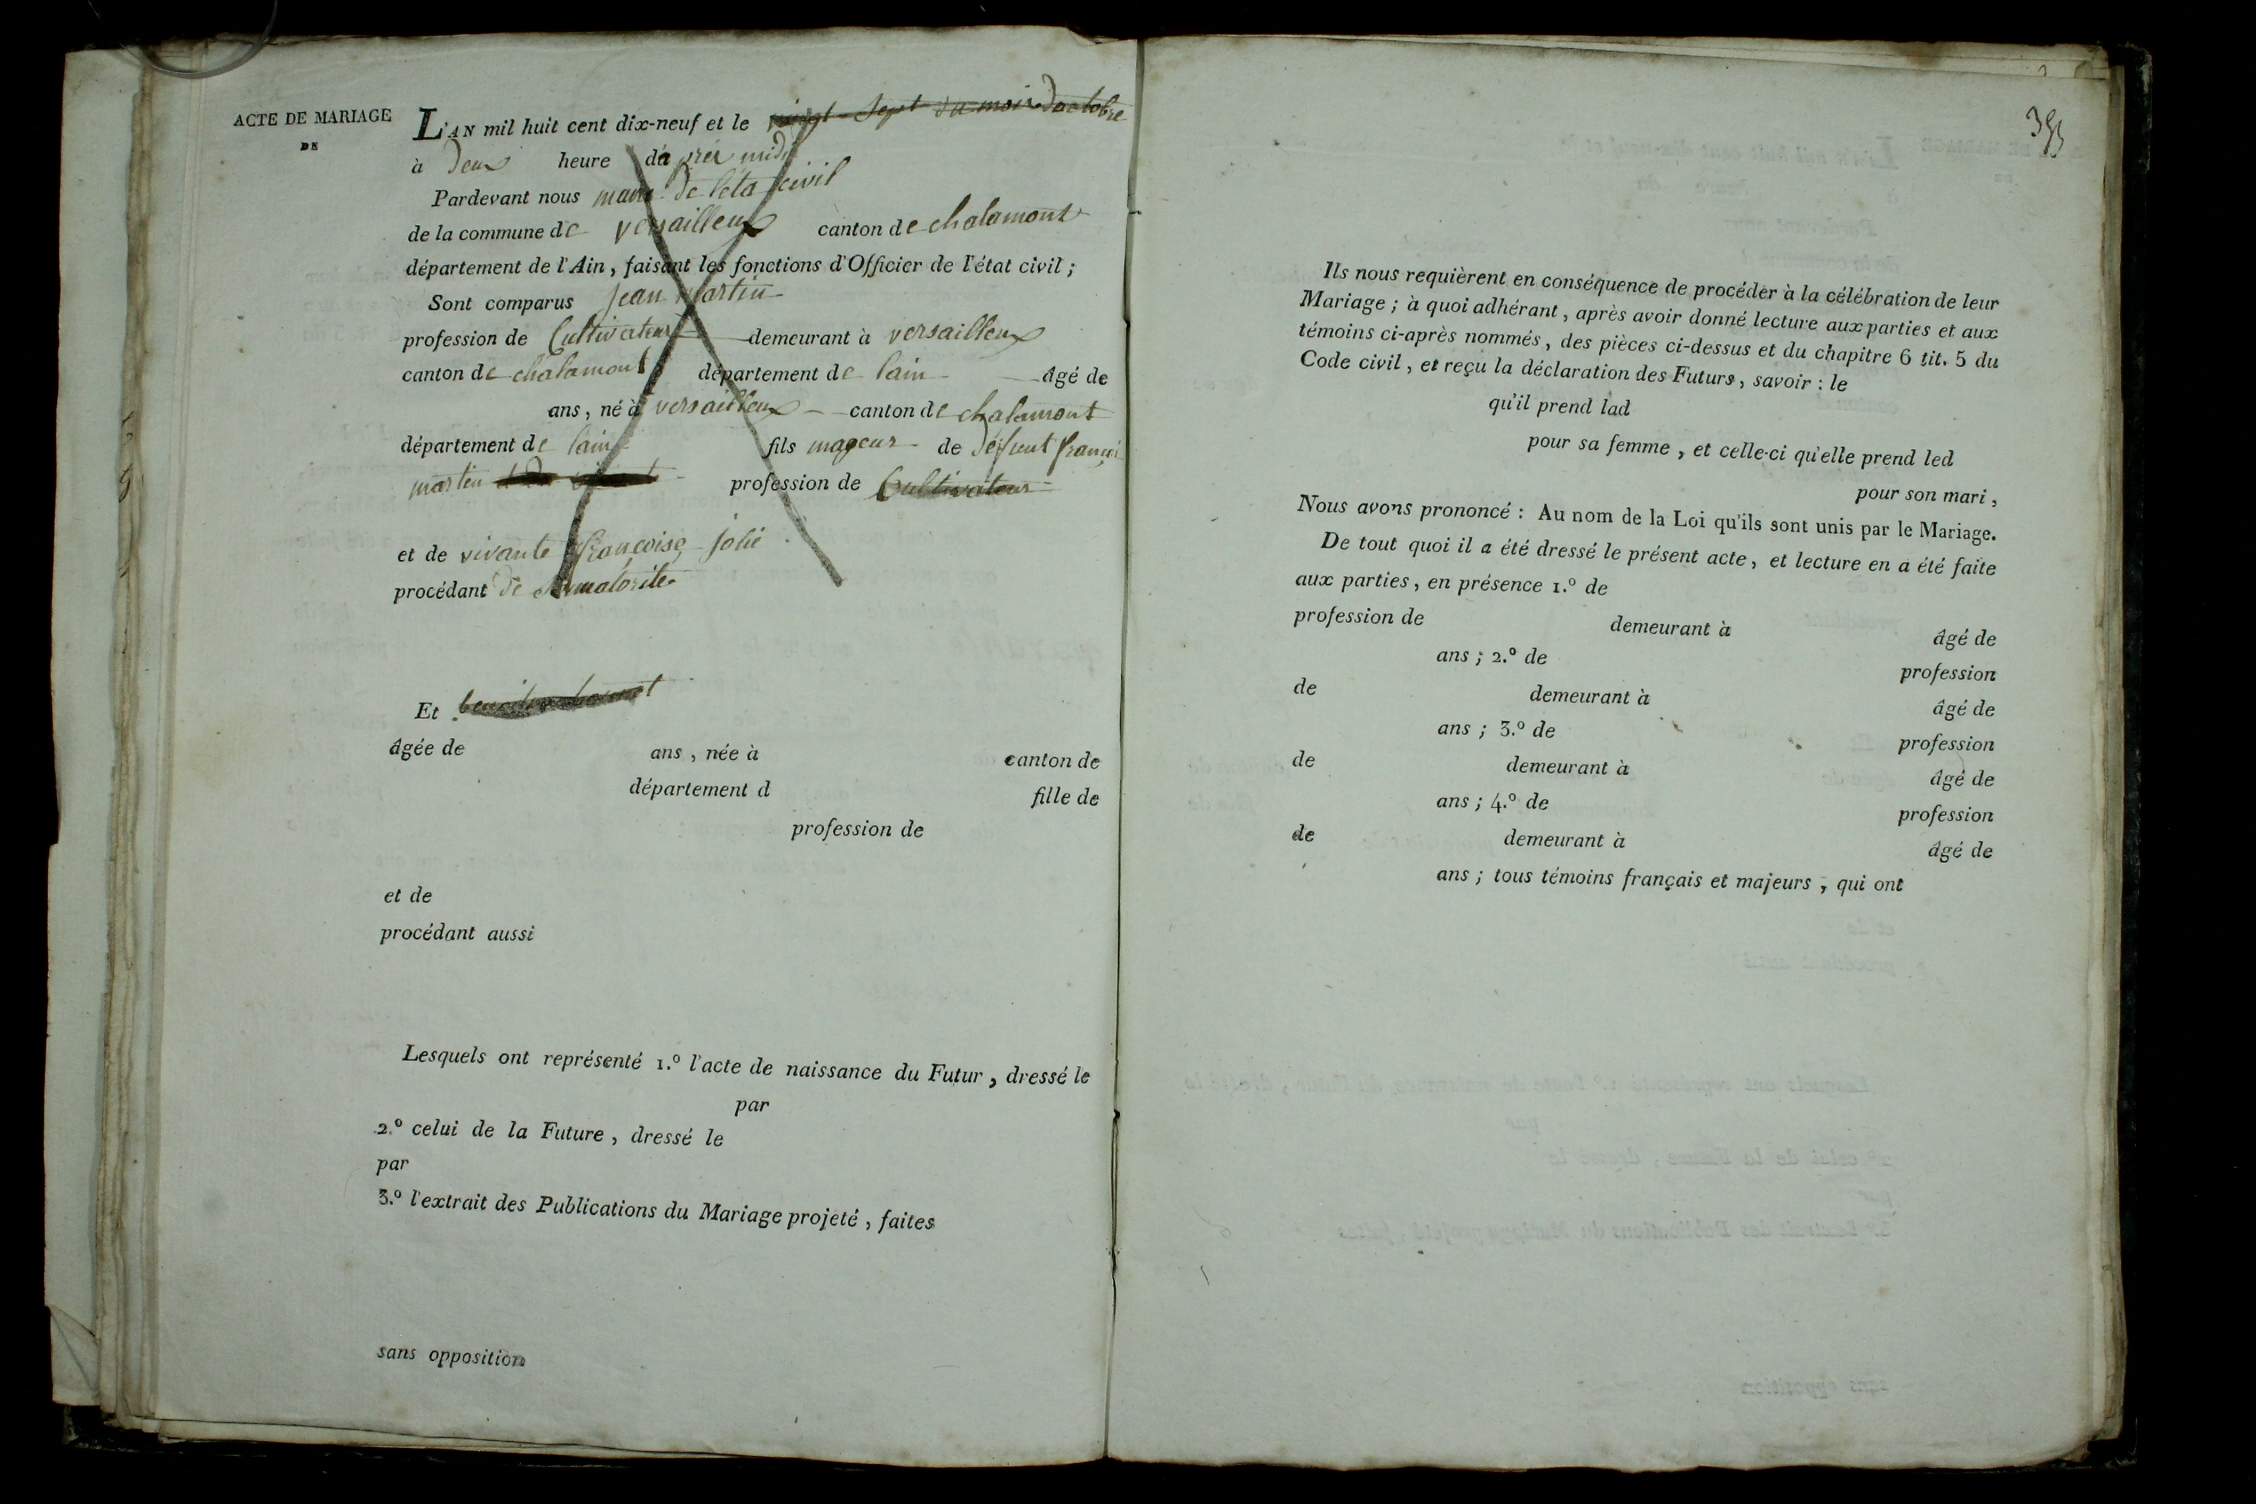 ACTE DE MARIAGE
DE
L'AN mil huit cent dix-neuf et le vingt-Sept du mois Doctobre
à Deux heure da prés midi
Pardevant nous maire De léta civil
de la commune de versailleux canton de chalamont
département de l'Ain, faisant les fonctions d'Officier de l'état civil;
Sont comparus jean martin
profession de Cultivateur demeurant à versailleux
canton de chalamont département de lain âgé de
ans, né à versailleux canton de chalamont
département de lain fils mageur de Défunt françoi
martin profession de Cultivateur
et de vivante françoise jolie
procédant de
Et benoite
âgée de ans, née à canton de
département d fille de
profession de
et de
procédant aussi
Lesquels ont représenté 1.º l'acte de naissance du Futur, dressé le
par
2.º celui de la Future, dressé le
par
3.º l'extrait des Publications du Mariage projeté, faites
sans opposition
Ils nous requièrent en conséquence de procéder à la célébration de leur
Mariage; à quoi adhérant, après avoir donné lecture aux parties et aux
témoins ci-après nommés, des pièces ci-dessus et du chapitre 6 tit. 5 du
Code civil, et reçu la déclaration des Futurs, savoir: le
qu'il prend lad
pour sa femme, et celle-ci qu'elle prend led
pour son mari,
Nous avons prononcé: Au nom de la Loi qu'ils sont unis par le Mariage.
De tout quoi il a été dressé le présent acte, et lecture en a été faite
aux parties, en présence 1.º de
profession de demeurant à âgé de
ans; 2.º de profession
de demeurant à âgé de
ans; 3.º de profession
de demeurant à âgé de
ans; 4.º de profession
de demeurant à âgé de
ans; tous témoins français et majeurs, qui ont